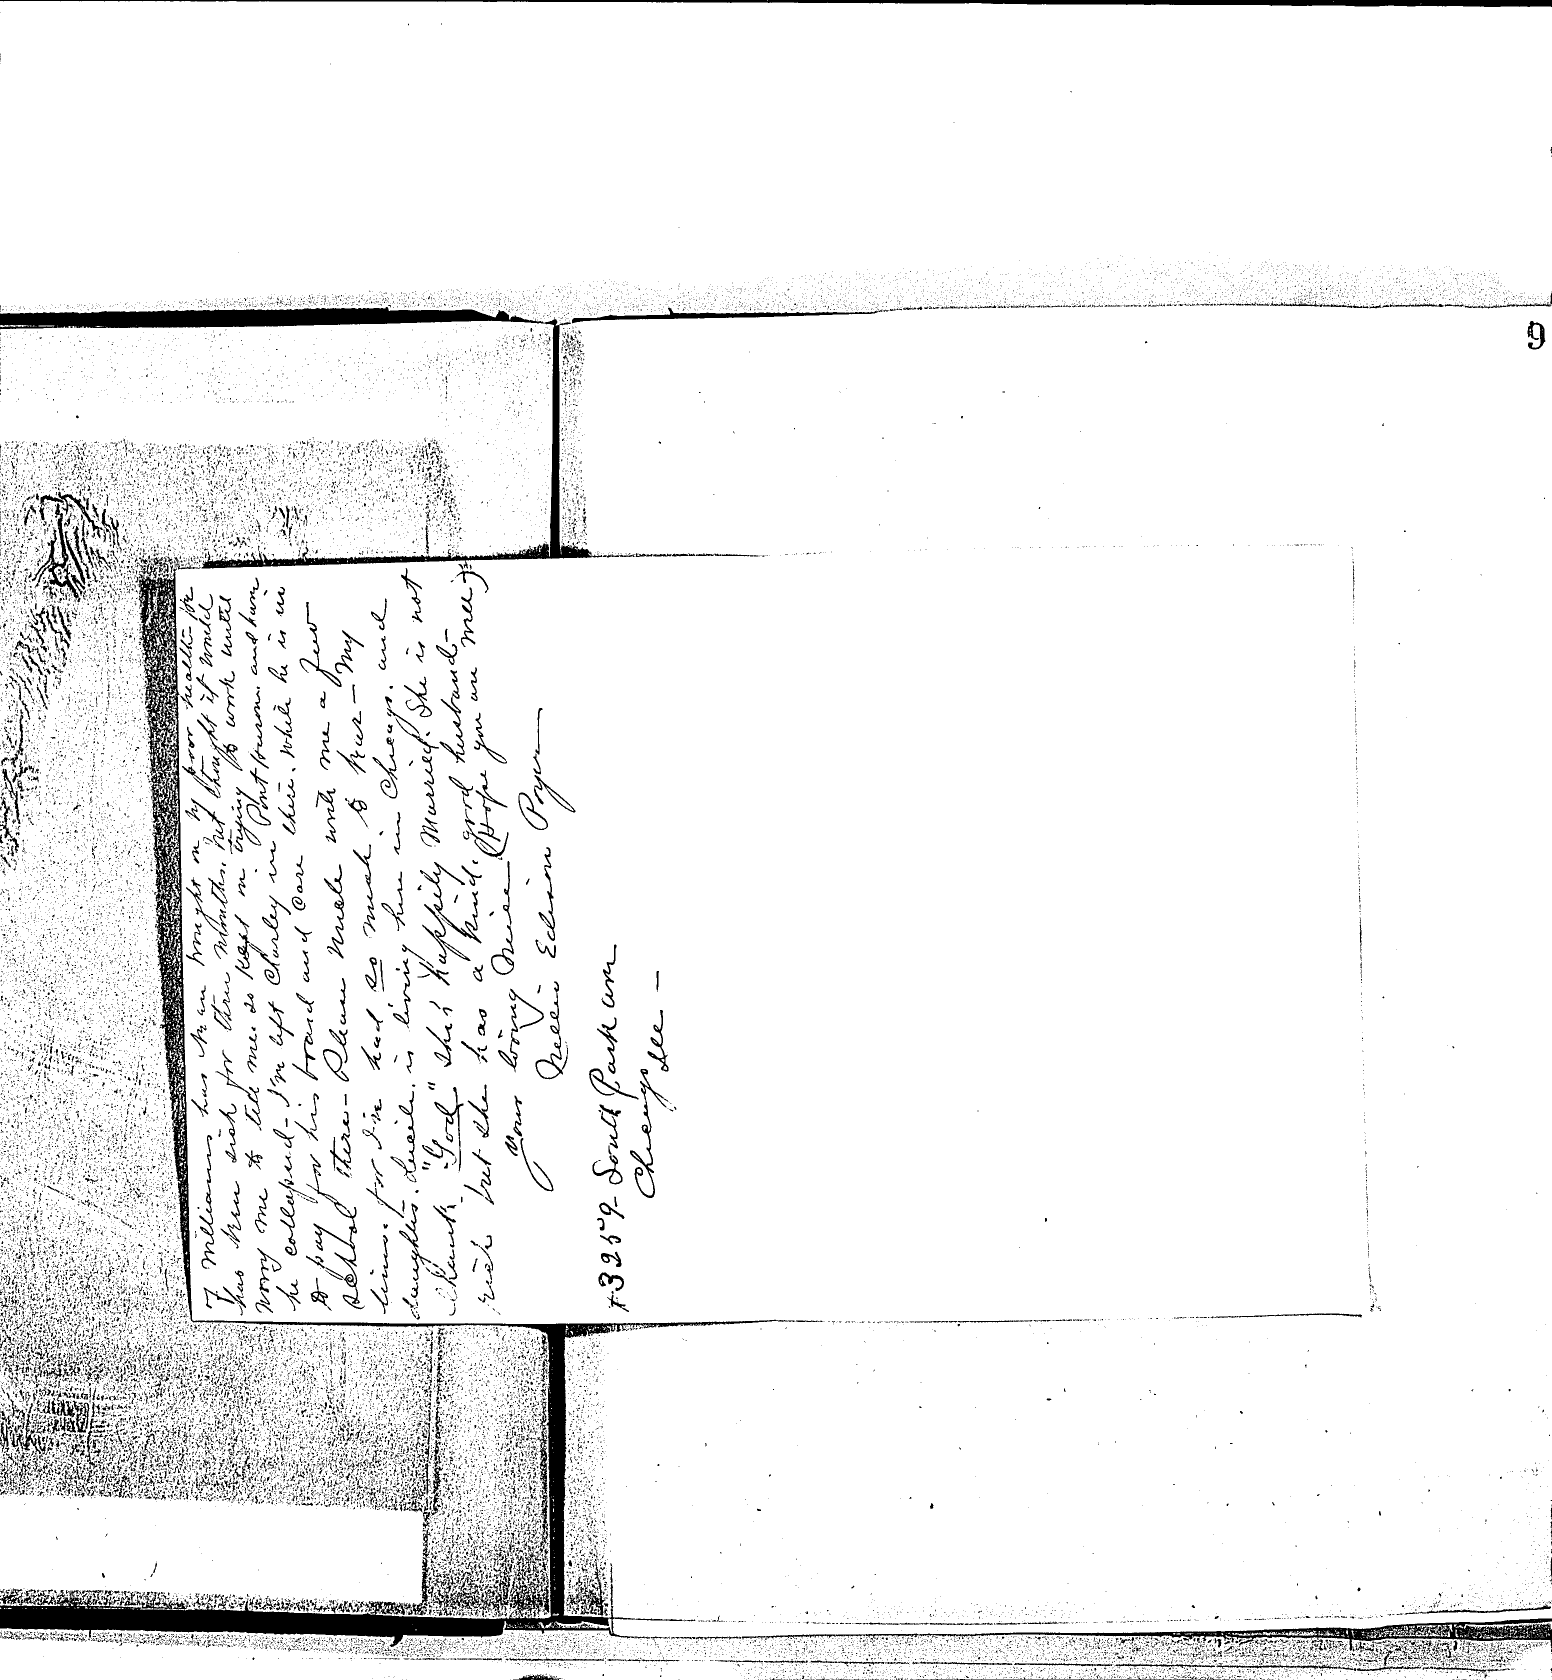 7 Williams has been brought on by poor health - for
has been sick for three months. but thought it would
worry me to tell me so kept on trying to work until
he collapsed - I've left Charley in Port Huron. and have
to pay for his board and care there. while he is in
school there - Please Uncle write me a few
lines. for I've had so much to bear - My
daughter. Lucile. is living here in Chicago. and
thank "God" she's happily Married. She is not
rich but she has a kind, good husband -
your loving Niece (Hope you are well)
Nellie Edison Poyer
#3259 South Park Ave
Chicago
Ill -
9